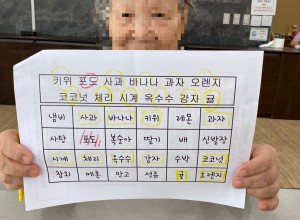 키위 포도 사과 바나나 과자 오렌지
코코넛 체리 시계 옥수수 감자 귤
냄비 사과 바나나 키위 레몬 과자
사탕 포도 복숭아 딸기 배 신발장
시계 체리 옥수수 감자 수박 코코넛
참외 메론 망고 석류 귤 오렌지